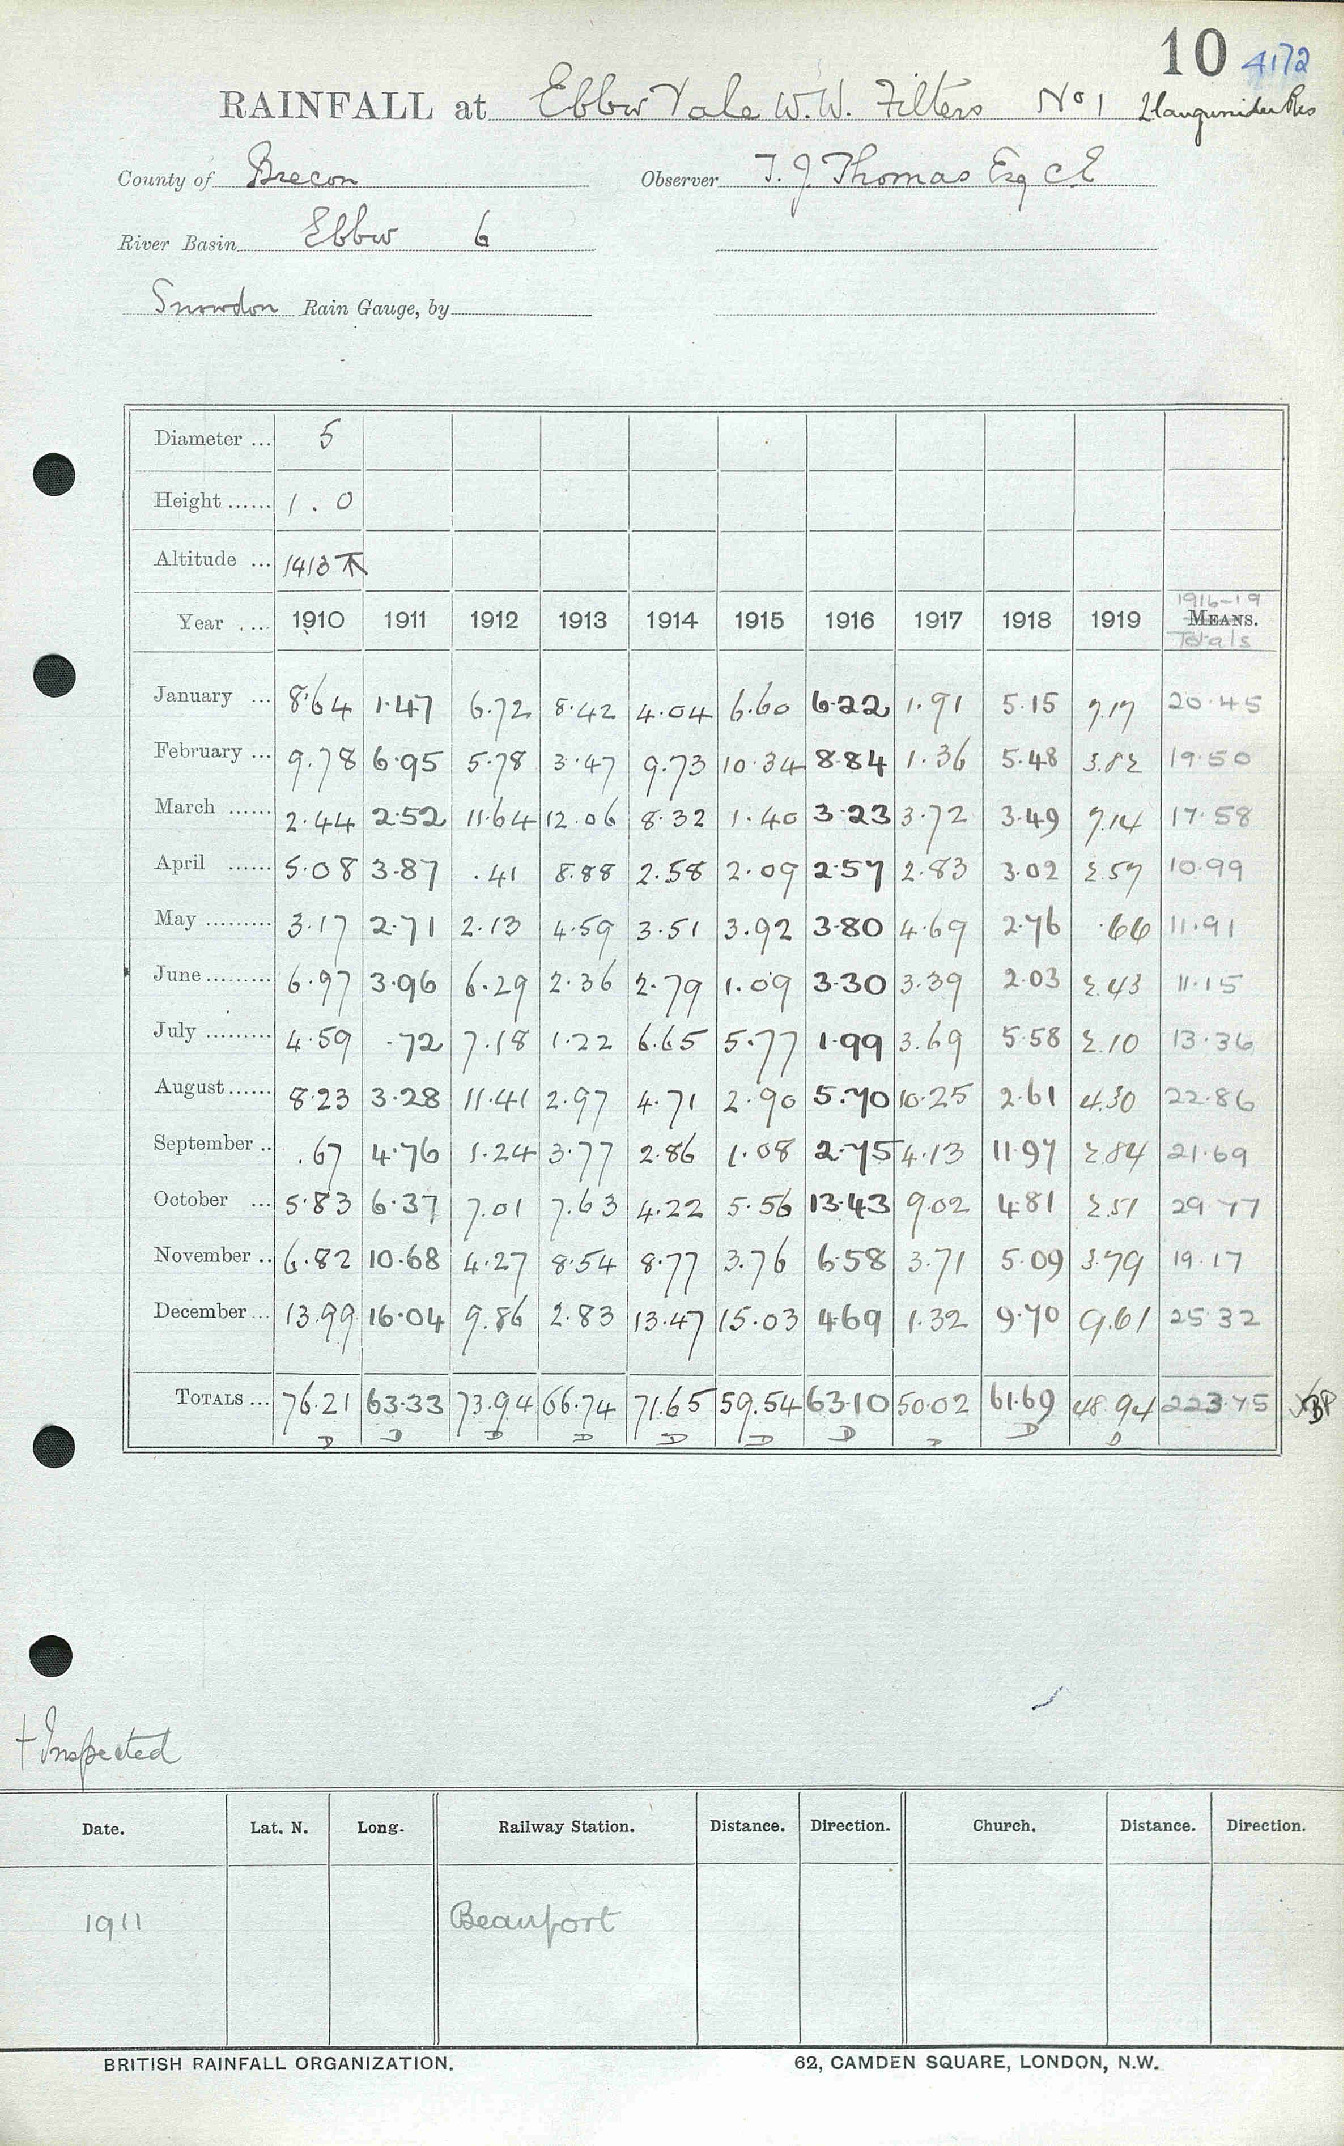 10 4172
RAINFALL at Ebbw Vale W.W. Filters No 1 Llangunider Res
County of Brecon Observer T. J Thomas Esq CE
River Basin Ebbw 6
Snowdon Rain Gauge, by
Diameter ... 5
Height ...... 1.0
Altitude ... 1413
Year .... 1910 1911 1912 1913 1914 1915 1916 1917 1918 1919 1916-19 MEANS. Totals
January ... 8.64 1.47 6.72 8.42 4.04 6.60 6.22 1.91 5.15 7.17 20.45
February ... 9.78 6.95 5.78 3.47 9.73 10.34 8.84 1.36 5.48 3.82 19.50
March ...... 2.44 2.52 11.64 12.06 8.32 1.40 3.23 3.72 3.49 7.14 17.58
April ...... 5.08 3.87 .41 8.88 2.58 2.09 2.57 2.83 3.02 2.57 10.99
May ......... 3.17 2.71 2.13 4.59 3.51 3.92 3.80 4.69 2.76 .66 11.91
June ......... 6.97 3.96 6.29 2.36 2.79 1.09 3.30 3.39 2.03 2.43 11.15
July ......... 4.59 .72 7.18 1.22 6.65 5.77 1.99 3.69 5.58 2.10 13.36
August...... 8.23 3.28 11.41 2.97 4.71 2.90 5.70 10.25 2.61 4.30 22.86
September .. .67 4.76 1.24 3.77 2.86 1.08 2.75 4.13 11.97 2.84 21.69
October ... 5.83 6.37 7.01 7.63 4.22 5.56 13.43 9.02 4.81 2.51 29.77
November .. 6.82 10.68 4.27 8.54 8.77 3.76 6.58 3.71 5.09 3.79 19.17
December ... 13.99 16.04 9.86 2.83 13.47 15.03 4.69 1.32 9.70 9.61 25.32
TOTALS ... 76.21 63.33 73.94 66.74 71.65 59.54 63.10 50.02 61.69 48.94 223.75
D D D D D D D D D D
† Inspected
Date. Lat. N. Long. Railway Station. Distance. Direction. Church. Distance. Direction.
1911 Beaufort
BRITISH RAINFALL ORGANIZATION. 62, CAMDEN SQUARE, LONDON, N.W.